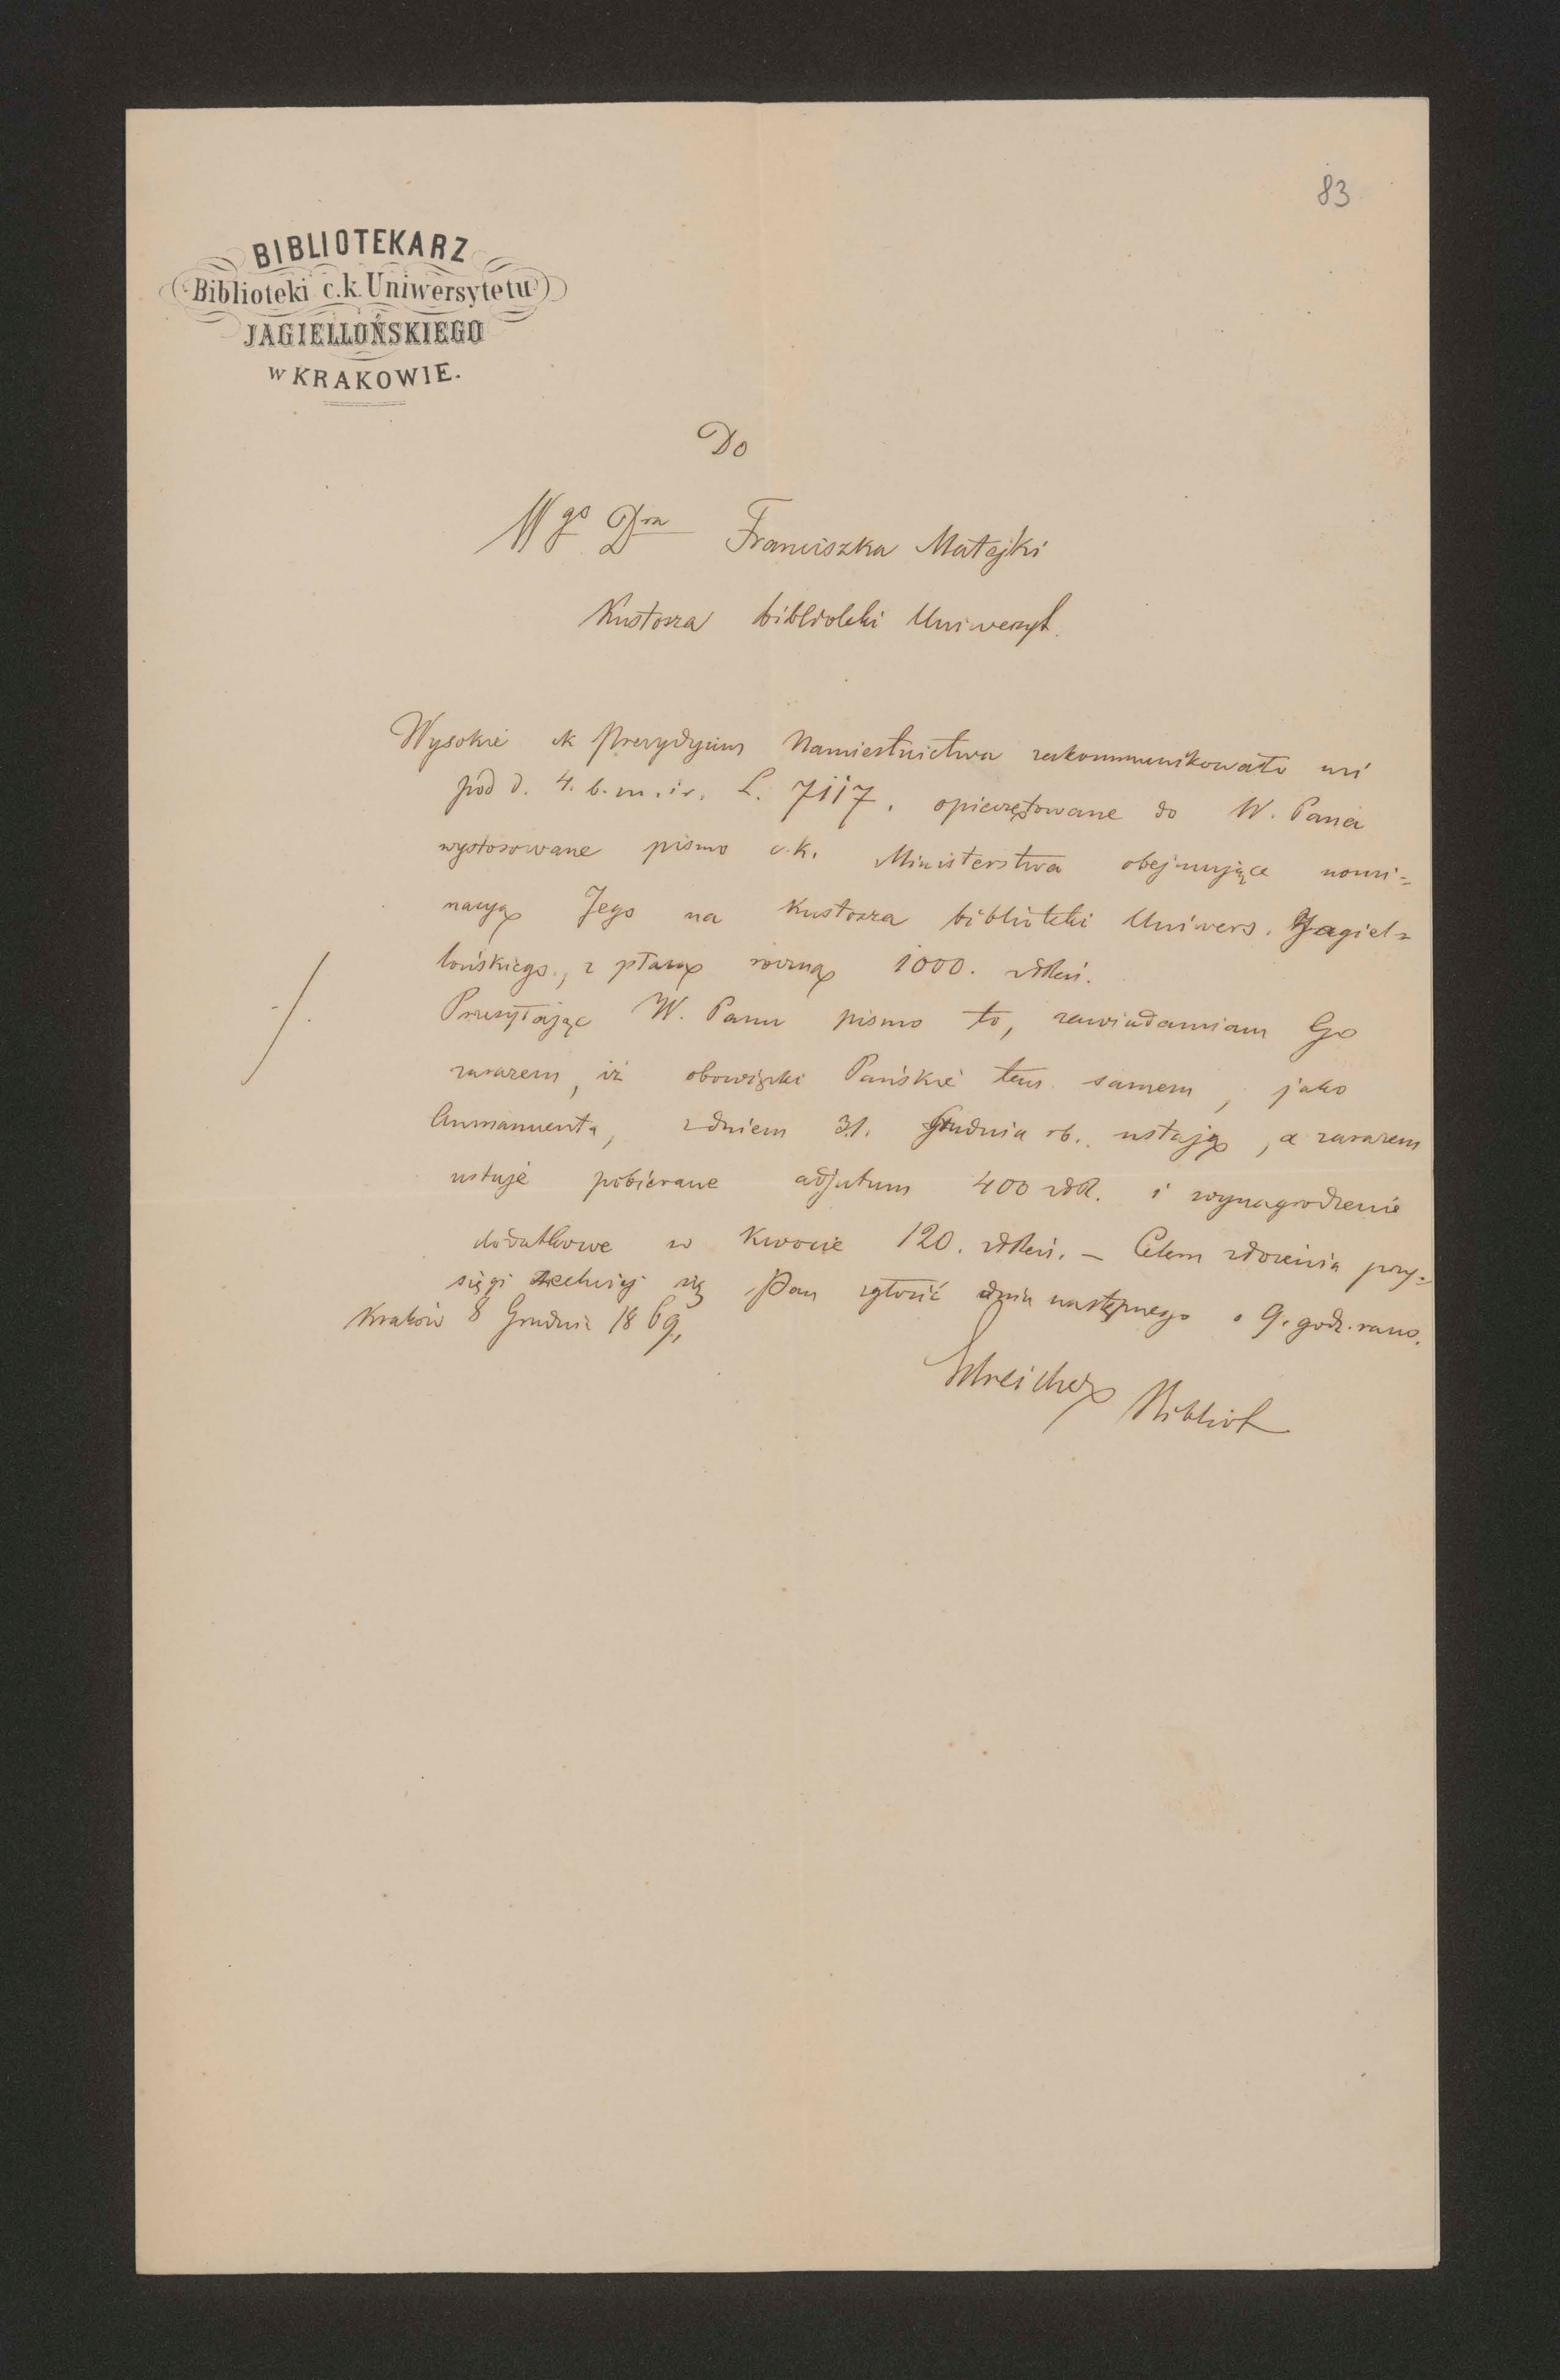 83
BIBLIOTEKARZ
Biblioteki c.k. Uniwersytetu
JAGIELLOŃSKIEGO
w KRAKOWIE.
Do
Wgo Dra Franciszka Matejki
Kustosza biblioteki Uniwersyt.
Wysokie ck Prezydyum Namiestnictwa zakommunikowało mi
pod d. 4. b. m. i r. L. 7117. opieczętowane do W. Pana
wystosowane pismo c.k. Ministerstwa obejmujące nomi=
nacyą Jego na Kustosza biblioteki Uniwers. Jagiel=
lońskiego, z płacą roczną 1000. złłReń.
Przesyłając W. Panu pismo to, zawiadamiam Go
zarazem, iż obowiązki Pańskie tem samem, jako
Amanuenta, z dniem 31. Grudnia rb. ustają, a zarazem
ustaje pobierane adjutum 400 złR. i wynagrodzenie
dodatkowe w kwocie 120. złReń. – Celem złożenia przy=
sięgi zechciej się Pan zgłosić dnia następnego o 9. godz. rano.
Kraków 8 Grudnia 1869,
Estreicher Bibliot